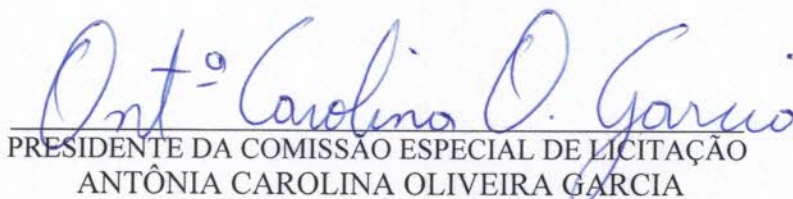 Antª Carolina O. Garcia
PRESIDENTE DA COMISSÃO ESPECIAL DE LICITAÇÃO
ANTÔNIA CAROLINA OLIVEIRA GARCIA